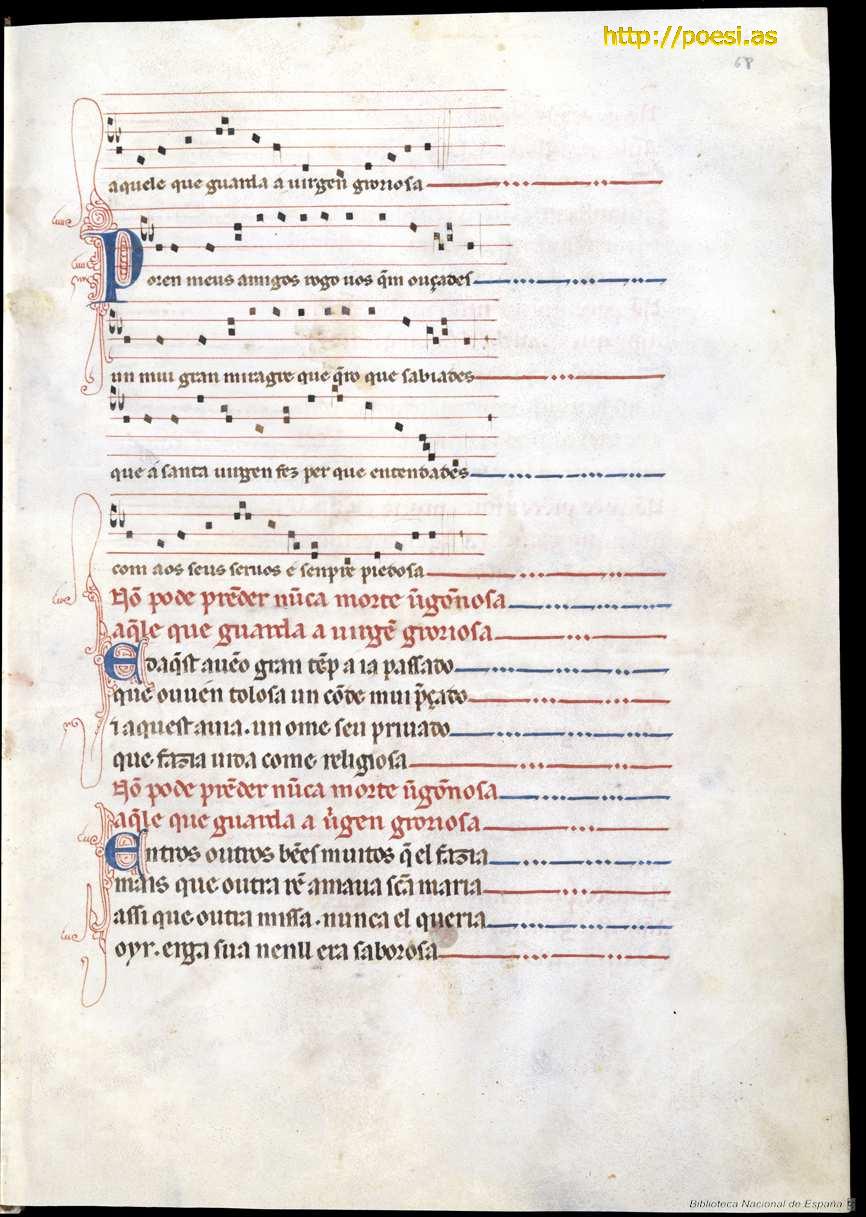 http://poesi.as
68
aquele que guarda a uirgen groriosa
Poren meus amigos rogo uos q̄m ouçades
un mui gran miragre que q̄ro que sabiades
que a santa uirgen fez per que entendades
com aos seus seruos e senpre piedosa
Nō pode prēder nūca morte ũgōnosa
aq̄le que guarda a uirgē groriosa
E daq̄st auēo gran tēp a ia passado
que ouu en tolosa un cōde mui p̃çado
⁊ aquest auia . un ome seu priuado
que fazia uida come religiosa
Nō pode prēder nūca morte ũgōnosa
aq̄le que guarda a ũgen groriosa
Entros outros bẽes muitos q̄ el fazia
mais que outra rē amaua sc̄a maria
assi que outra missa . nunca el queria
oyr . erga sua nenll era saborosa
Biblioteca Nacional de España